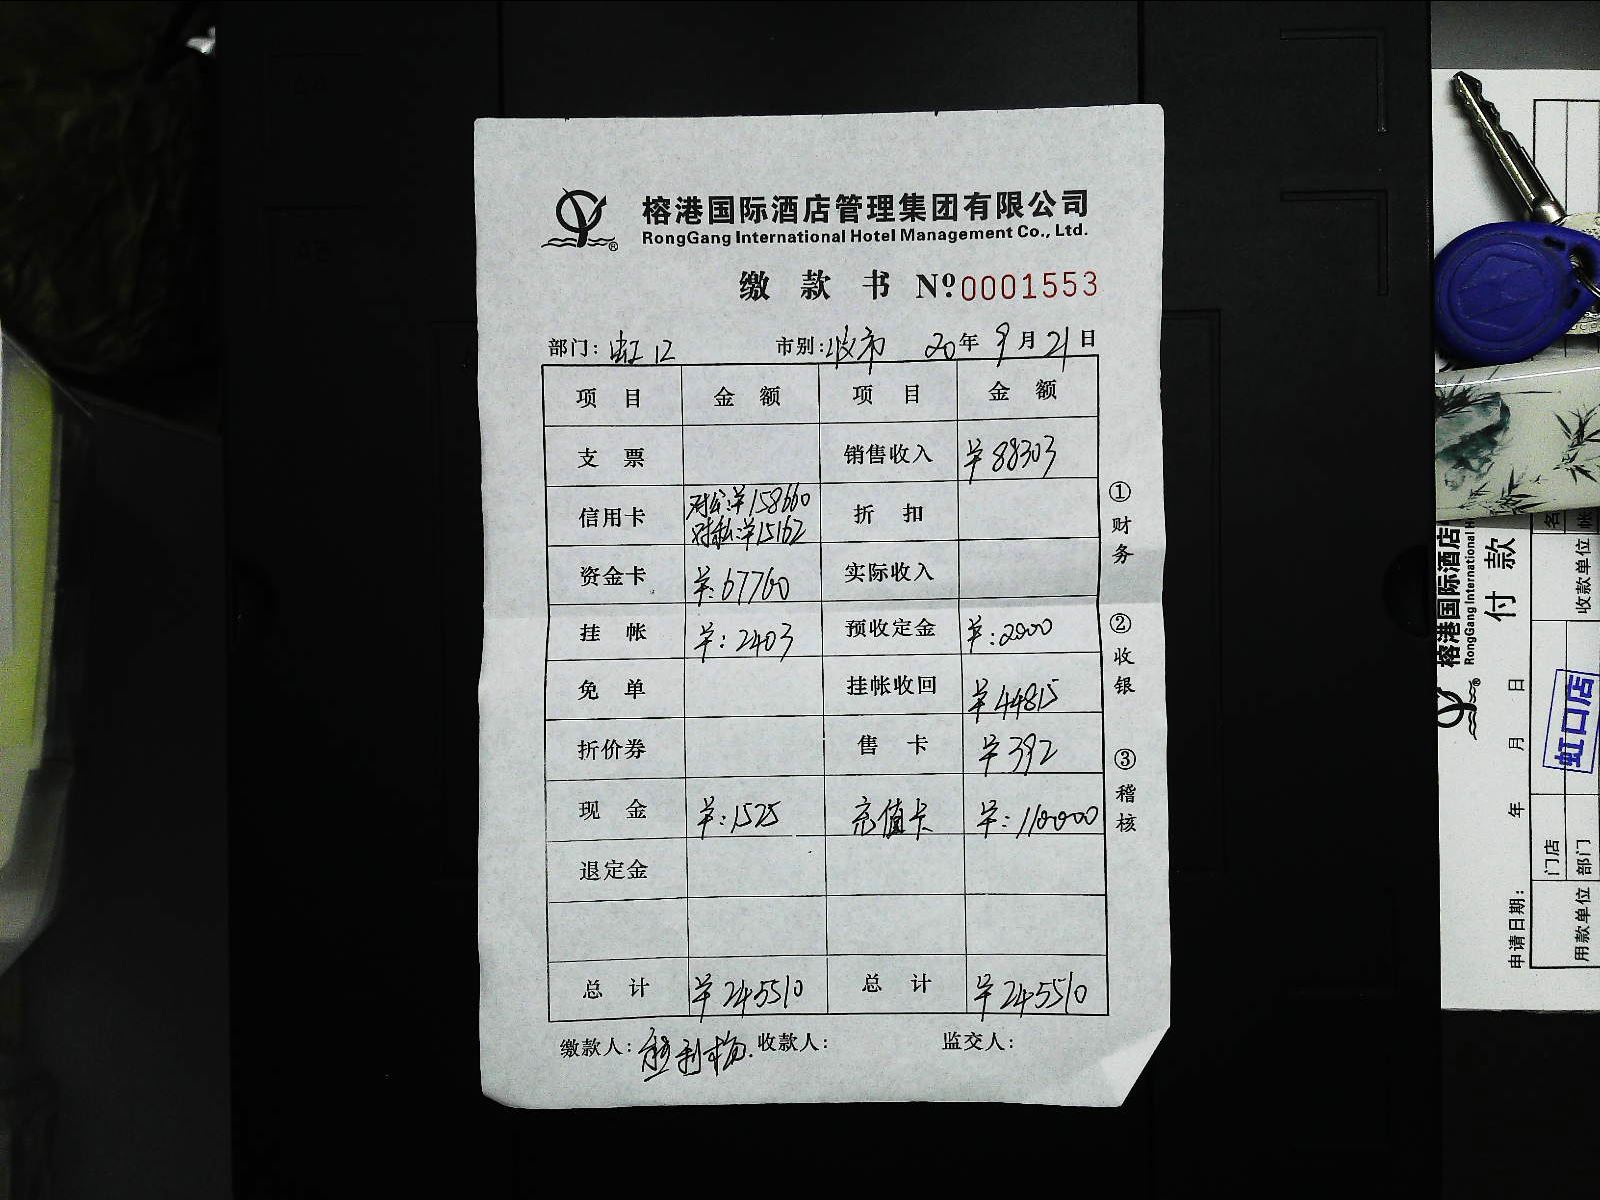 榕港国际酒店管理集团有限公司
RongGang International Hotel Management Co., Ltd.
缴款书 Nº 0001553
部门: 虹口 市别: 收市 20年9月21日
项目 金额 项目 金额
支票 销售收入 ¥88303
信用卡 对公:¥158660 折扣
对私:¥15162
资金卡 ¥:67760 实际收入
挂帐 ¥:2403 预收定金 ¥:2000
免单 挂帐收回 ¥44815
折价券 售卡 ¥392
现金 ¥:1525 充值卡 ¥:110000
退定金
总计 ¥245510 总计 ¥245510
缴款人: 熊利梅 收款人: 监交人:
①财务
②收银
③稽核
榕港国际酒店
RongGang International H
付款
申请日期: 年 月 日
用款单位 部门 收款单位
门店
虹口店
名
帐